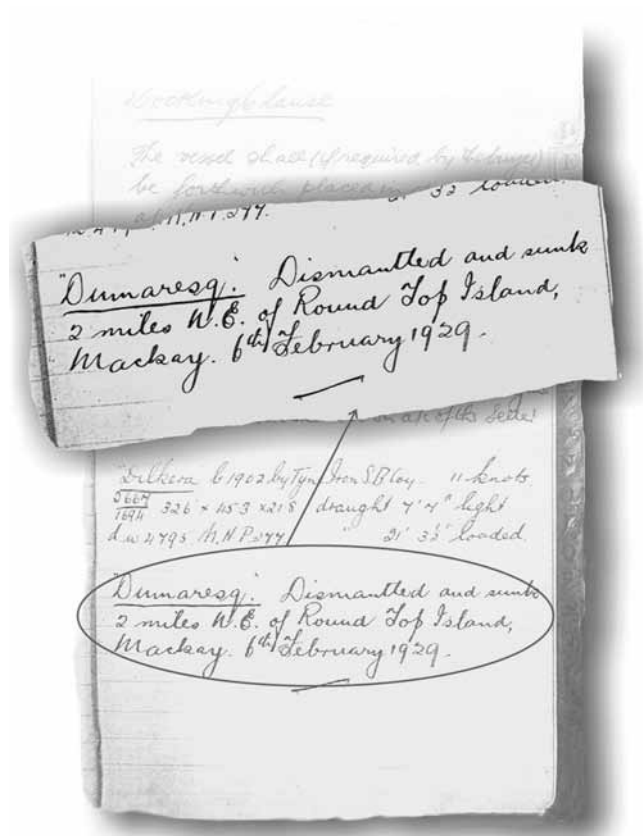 Docking Clause
The vessel shall (if required by
be forthwith placed in
33 loaded.
M.N.P. 277.
"Dumaresq." Dismantled and sunk
2 miles N.E. of Round Top Island,
Mackay. 6th February 1929.
of the Seller
"Dilkera" b 1902 by Tyne Iron S.B Coy. 11 knots.
3667
1694 326' × 45.3 × 21.8 draught 7' 7" light
d.w 4795 M.N.P. 277 " 21' 3½" loaded
"Dumaresq." Dismantled and sunk
2 miles N.E. of Round Top Island,
Mackay. 6th February 1929.